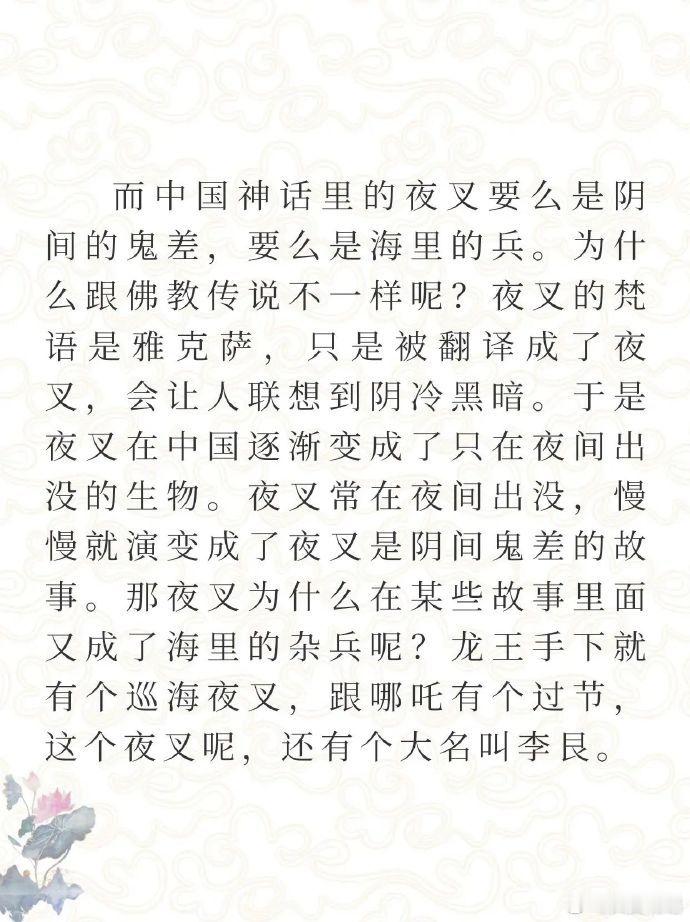 而中国神话里的夜叉要么是阴
间的鬼差，要么是海里的兵。为什
么跟佛教传说不一样呢？夜叉的梵
语是雅克萨，只是被翻译成了夜
叉，会让人联想到阴冷黑暗。于是
夜叉在中国逐渐变成了只在夜间出
没的生物。夜叉常在夜间出没，慢
慢就演变成了夜叉是阴间鬼差的故
事。那夜叉为什么在某些故事里面
又成了海里的杂兵呢？龙王手下就
有个巡海夜叉，跟哪吒有个过节，
这个夜叉呢，还有个大名叫李艮。